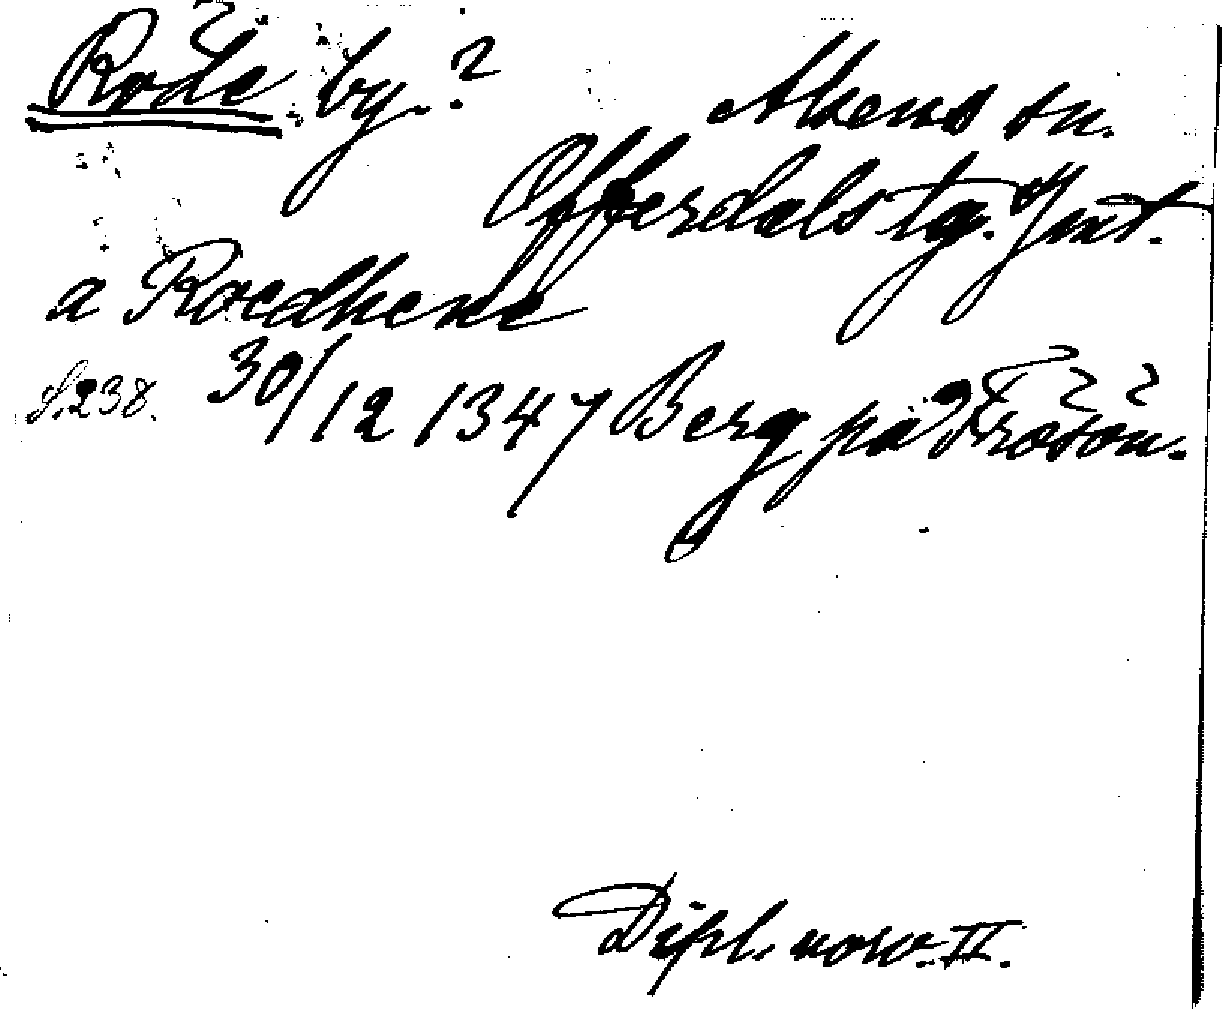 Röde by.?
Alsens sn.
Offerdals tg. Jmt.
a Roedhene
S.238. 30/12 1347 Berg på Frösön.
Dipl. norv. II.